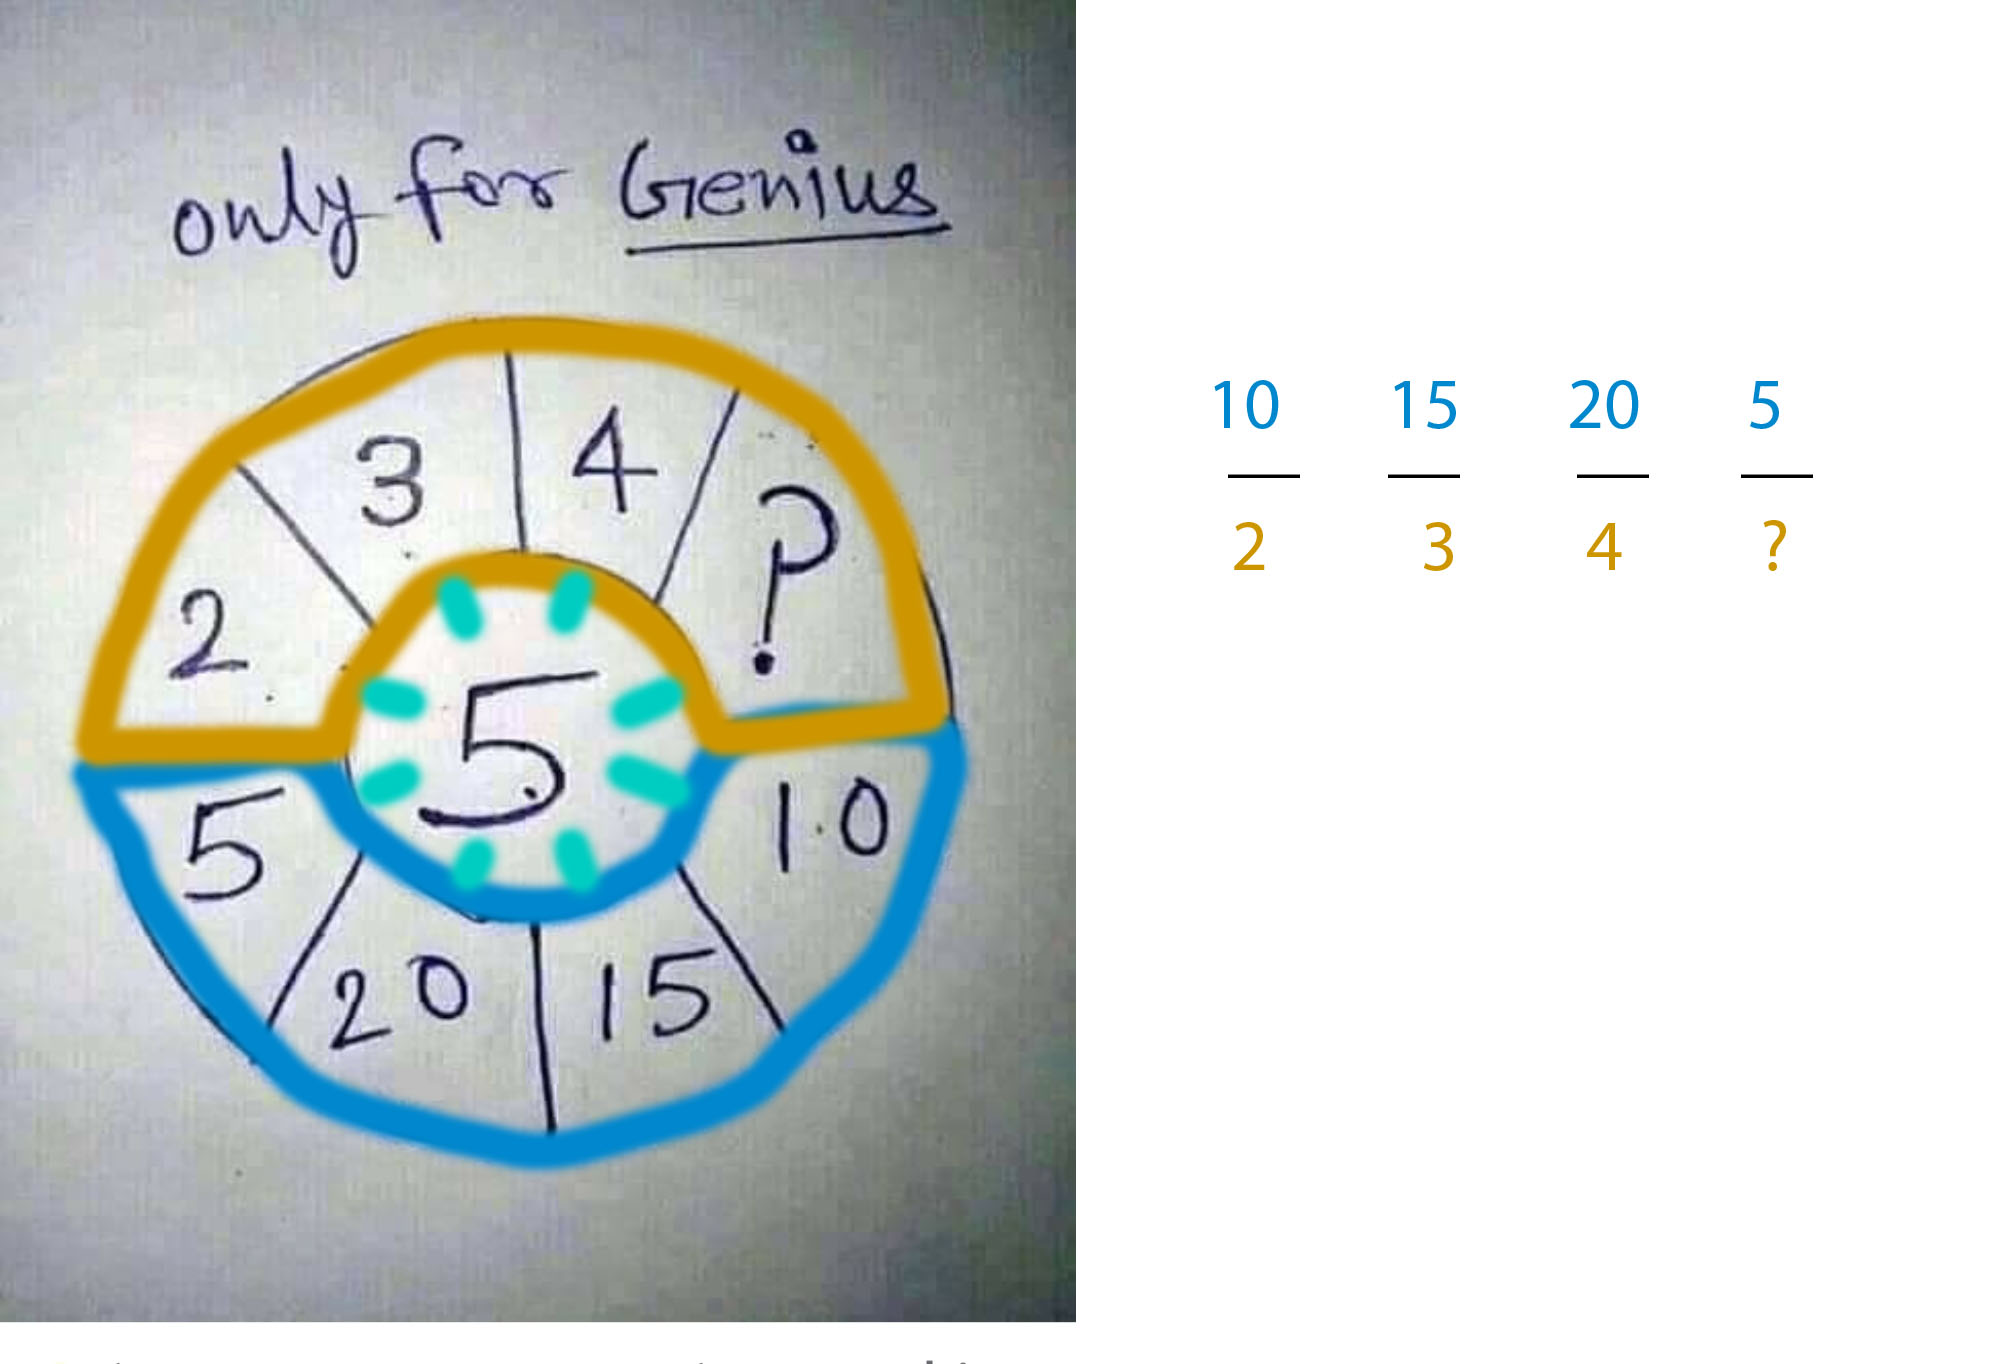 only for Genius
3 4
2 ?
5
5 10
20 15
10 15 20 5
2 3 4 ?